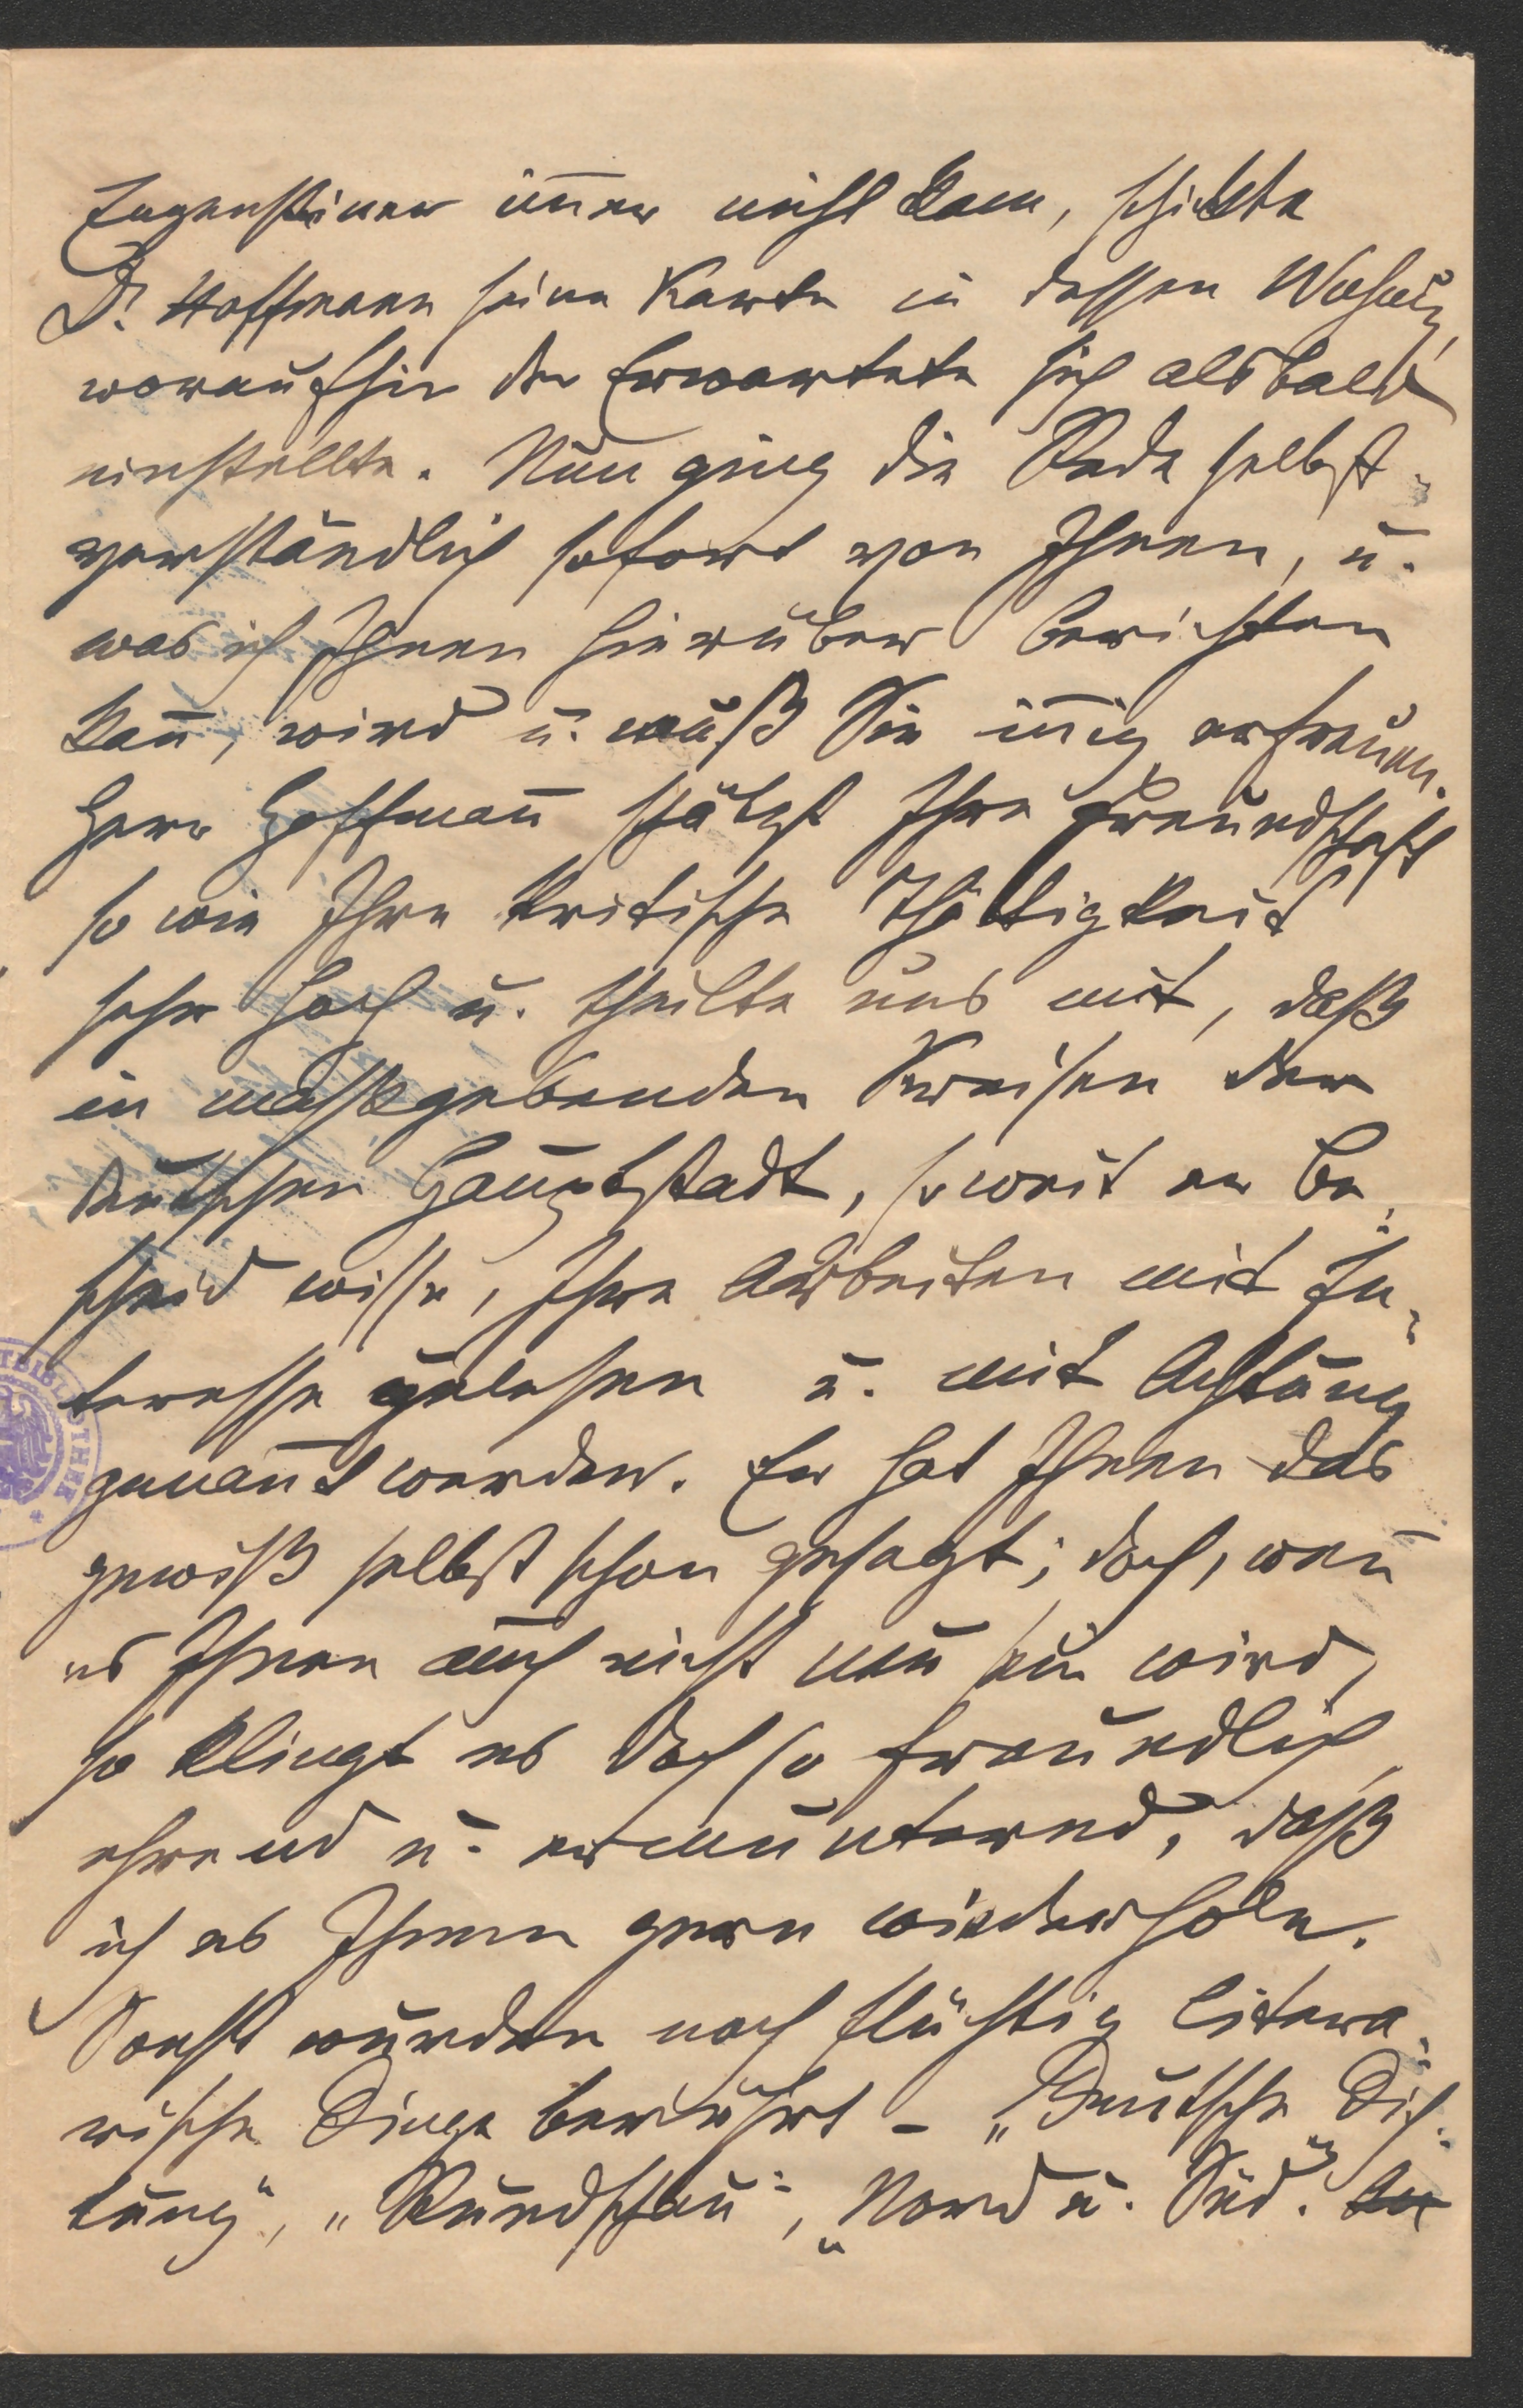 Zugensteiner im̄er nicht kam, schickte
Dr. Hoffmann seine Karte in dessen Wohnung,
woraufhin der Erwartete sich alsbald
einstellte. Nun ging die Rede selbst-
verständlich sofort von Ihnen, u.
was ich Ihnen hierüber berichten
kan̄, wird u. muß Sie in̄ig erfreuen.
Herr Hoffman̄ schätzt Ihre Freundschaft
so wie Ihre kritische Thätigkeit
sehr hoch u. theilte uns mit, daß
in maßgebenden Kreisen der
deutschen Hauptstadt, so weit er Be-
scheid wisse, Ihre Arbeiten mit In-
teresse gelesen u. mit Achtung
genan̄t werden. Er hat Ihnen das
gewiß selbst schon gesagt; doch, wen̄
es Ihnen auch nicht neu sein wird,
so klingt es doch so freundlich
ehrend u. ermunternd, daß
ich es Ihnen gern wiederhole.
Sonst wurden noch flüchtig litera-
rische Dinge berührt – „Deutsche Dich-
tung“, „Rundschau“, „Nord u. Süd.“
TBIBLIOTHEK